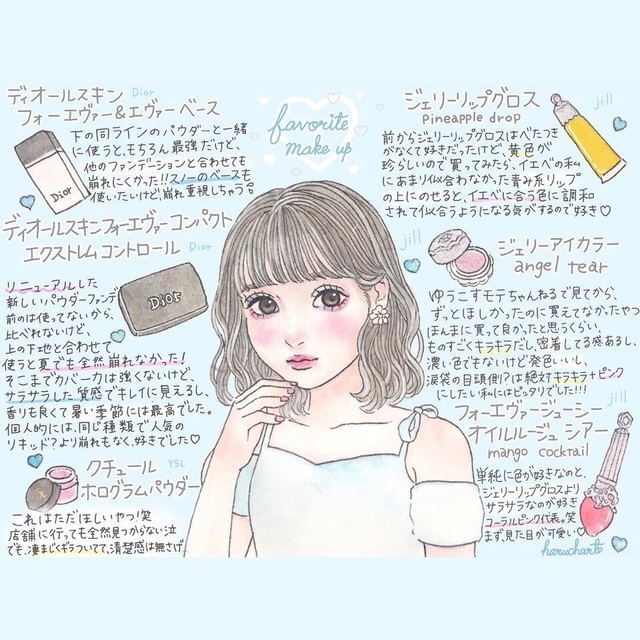 favorite
make up
ディオールスキン Dior
フォーエヴァー&エヴァーベース
下の同ラインのパウダーと一緒
に使うと、もちろん最強だけど、
他のファンデーションと合わせても
崩れにくかった!!スノーのベースも
使いたいけど、崩れ重視しちゃう。
Dior
ディオールスキンフォーエヴァーコンパクト
エクストレムコントロール Dior
リニューアルした
新しいパウダーファンデ
前のは使ってないから、
比べれないけど、
上の下地と合わせて
使うと夏でも全然崩れなかった!
そこまでカバー力は強くないけど、
サラサラした質感でキレイに見えるし、
香りも良くて暑い季節には最高でした。
個人的には、同じ種類で人気の
リキッド?より崩れもなく、好きでした♡
Dior
クチュール YSL
ホログラムパウダー
これはただほしいやつ!笑
店舗に行っても全然見つからない泣
でも、凄まじくギラついてて、清楚感は無さげ
ジェリーリップグロス jill
pineapple drop
前からジェリーリップグロスはべたつき
がなくて好きだったけど、黄色が
珍らしいので買ってみたら、イエベの私
にあまり似合わなかった青み系リップ
の上にのせると、イエベに合う色に調和
されて似合うようになる気がするので好き♡
jill
ジェリーアイカラー
angel tear
ゆうこすモテちゃんねるで見てから、
ずっとほしかったのに買えてなかったやつ
ほんまに買って良かったと思うくらい、
ものすごくキラキラだし、密着してる感あるし、
濃い色でもないけど発色いいし、
涙袋の目頭側!?は絶対キラキラ+ピンク
にしたい私にはピッタリでした!!!
フォーエヴァージューシー jill
オイルルージュ シアー
mango cocktail
単純に色が好きなのと、
ジェリーリップグロスより
サラサラなのが好き
コーラルピンク代表。笑
まず、見た目が可愛い♡
haruchart